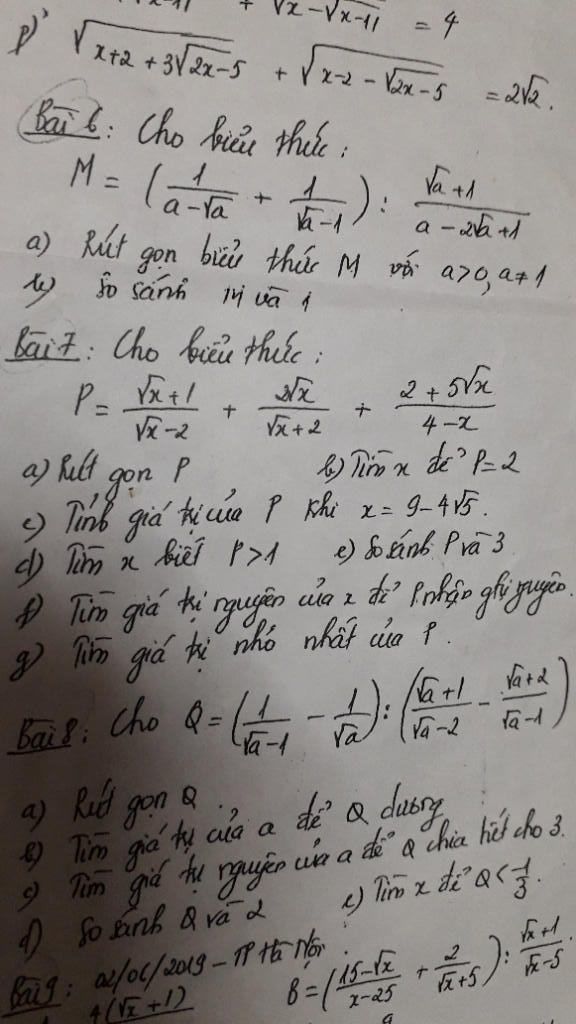 + √x-√x-11 = 4
p) √(x+2+3√(2x-5)) + √(x-2-√(2x-5)) = 2√2.
Bài 6: Cho biểu thức:
M = (1/(a-√a) + 1/(√a-1)) : (√a+1)/(a-2√a+1)
a) Rút gọn biểu thức M với a>0, a≠1
b) So sánh M và 1
Bài 7: Cho biểu thức:
P = (√x+1)/(√x-2) + 2√x/(√x+2) + (2+5√x)/(4-x)
a) Rút gọn P b) Tìm x để P=2
c) Tính giá trị của P khi x = 9-4√5.
d) Tìm x biết P>1 e) So sánh P và 3
f) Tìm giá trị nguyên của x để P nhận gtrị nguyên.
g) Tìm giá trị nhỏ nhất của P.
Bài 8: Cho Q = (1/(√a-1) - 1/√a) : ((√a+1)/(√a-2) - (√a+2)/(√a-1))
a) Rút gọn Q.
b) Tìm giá trị của a để Q dương
c) Tìm giá trị nguyên của a để Q chia hết cho 3.
d) So sánh Q và 2 e) Tìm x để Q < 1/3.
Bài 9: 02/06/2019 - TP Hà Nội.
4(√x+1) B = ((15-√x)/(x-25) + 2/(√x+5)) : (√x+1)/(√x-5)